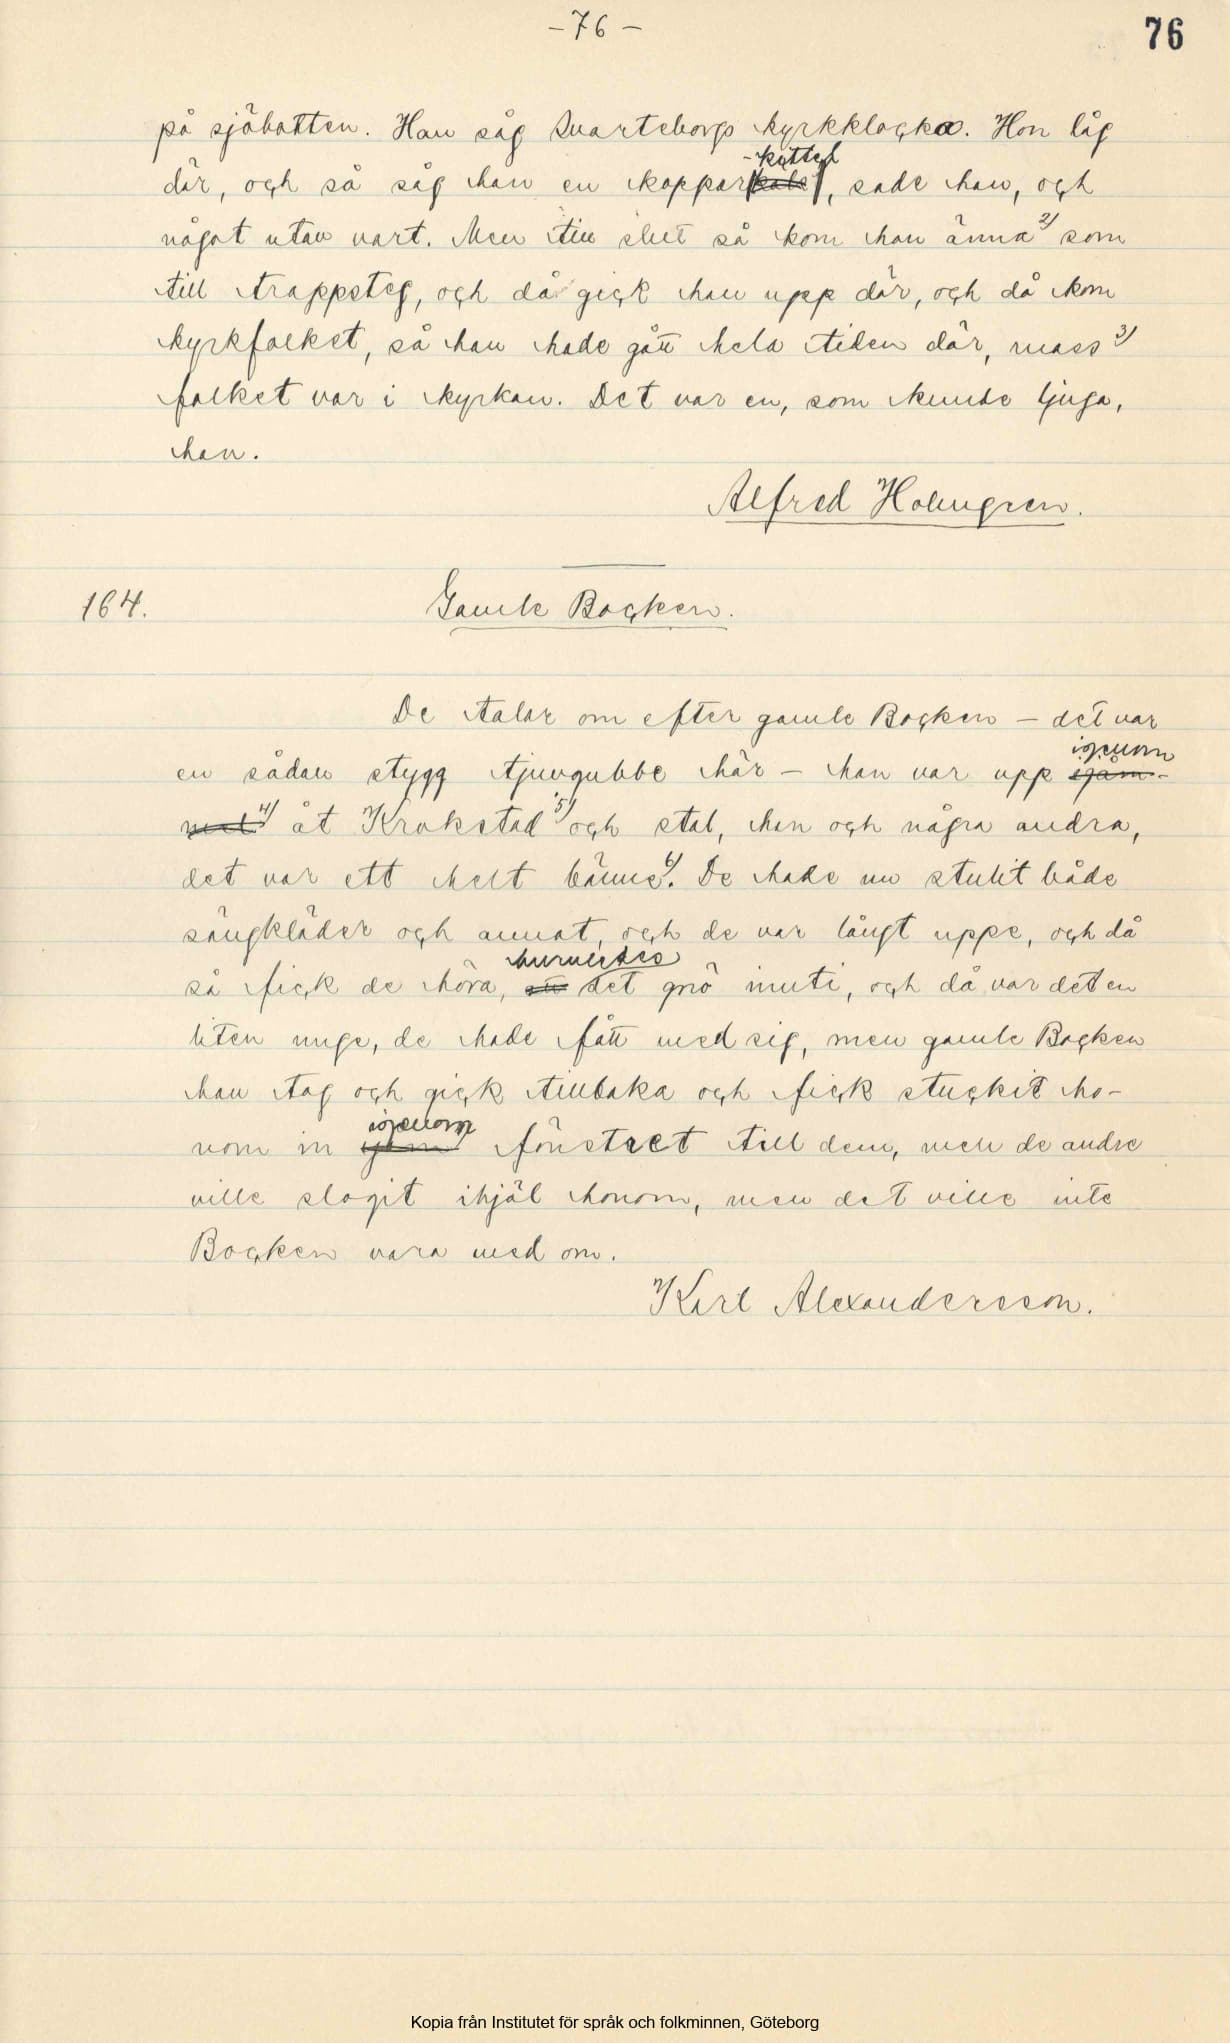 – 76 –
76
på sjöbotten. Han såg Svarteborgs kyrkklocka. Hon låg
-kittel
där, och så såg han en koppar, sade han, och
något utav vart. Men till slut så kom han änna 2) som
till trappsteg, och då gick han upp där, och då kom
kyrkfolket, så han hade gått hela tiden där, mass 3)
folket var i kyrkan. Det var en, som kunde ljuga,
han.
Alfred Holmgren.
164.
Gamle Bocken.
De talar om efter gamle Bocken – det var
igenom
en sådan stygg tjuvgubbe här – han var upp igåm-
4) åt Krokstad 5) och stal, han och några andra,
det var ett helt bänne 6). De hade nu stulit både
sängkläder och annat, och de var långt uppe, och då
hurledes
så fick de höra, det gnö inuti, och då var det en
liten unge, de hade fått med sig, men gamle Bocken
han tog och gick tillbaka och fick stuckit ho-
igenom
nom in fönstret till dem, men de andre
ville slagit ihjäl honom, men det ville inte
Bocken vara med om.
Karl Alexandersson.
Kopia från Institutet för språk och folkminnen, Göteborg